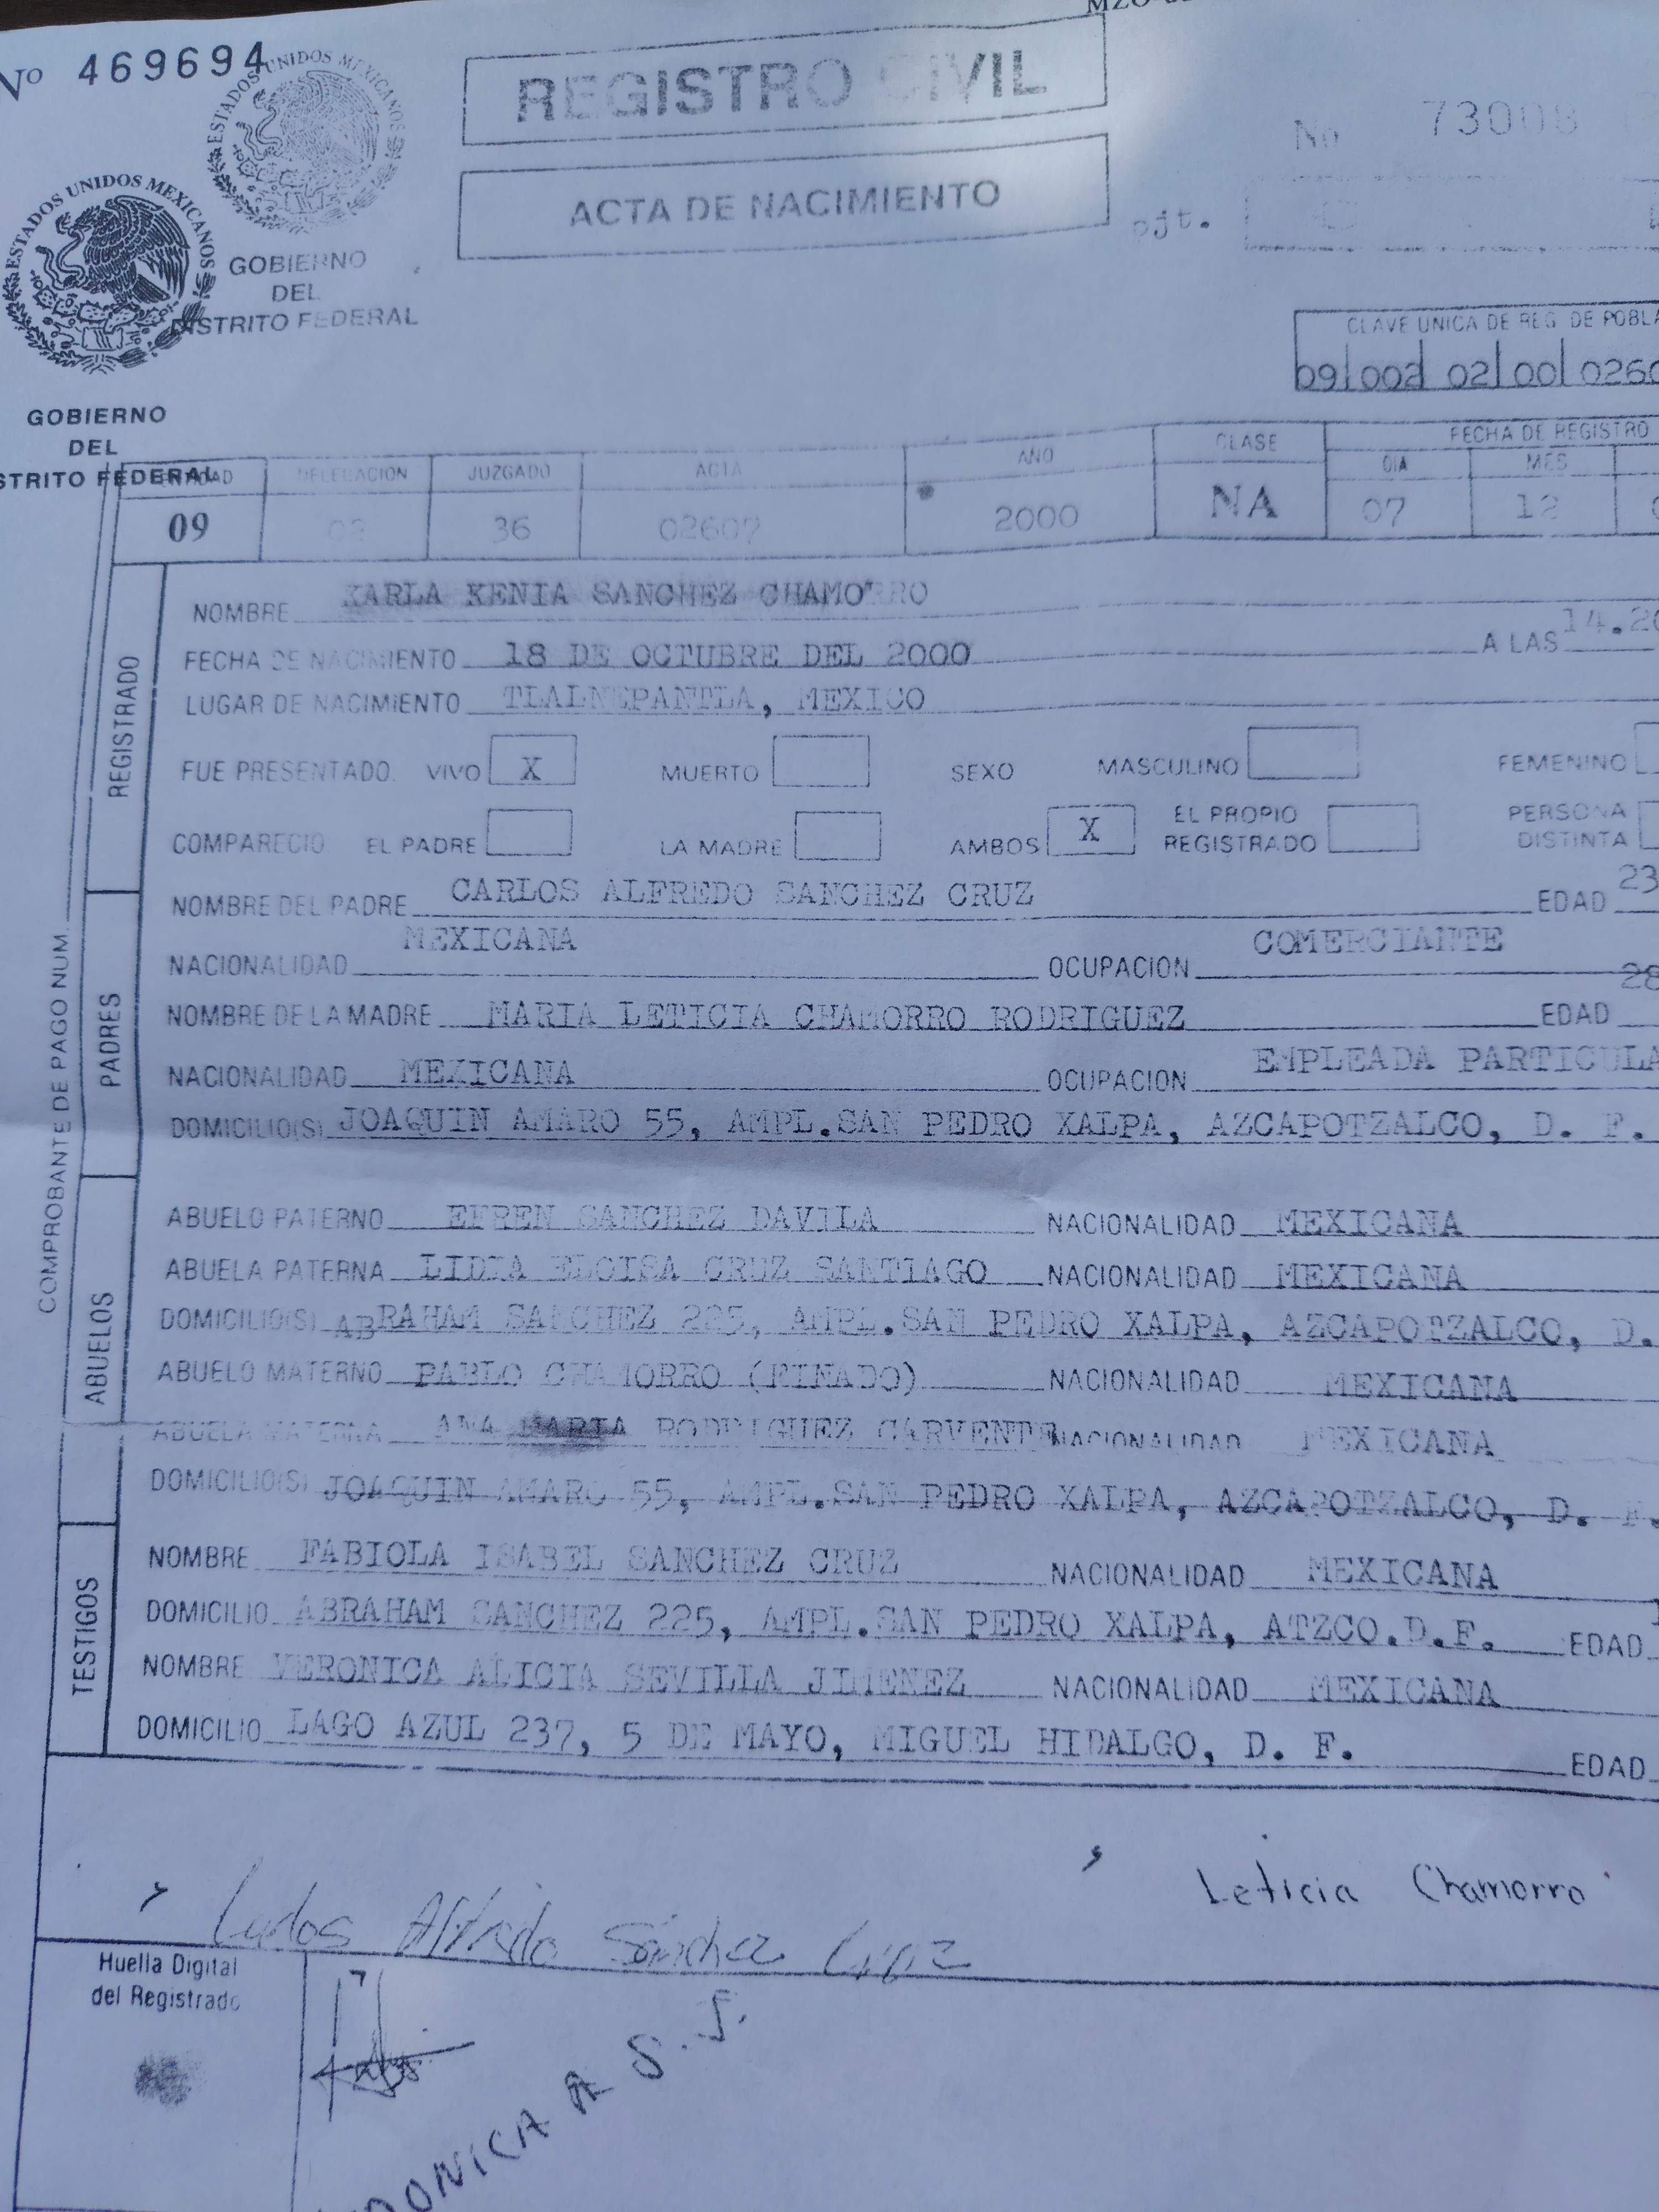 Nº 469694
ESTADOS UNIDOS MEXICANOS
ESTADOS UNIDOS MEXICANOS
REGISTRO CIVIL
No 73008
ACTA DE NACIMIENTO
GOBIERNO
DEL
DISTRITO FEDERAL
CLAVE UNICA DE REG. DE POBLA
09 002 02 00 0260
GOBIERNO
DEL
STRITO FEDERAL
DELEGACION JUZGADO ACTA AÑO CLASE FECHA DE REGISTRO
DIA MES
09 02 36 02607 2000 NA 07 12
COMPROBANTE DE PAGO NUM.
REGISTRADO
NOMBRE KARLA KENIA SANCHEZ CHAMORRO
FECHA DE NACIMIENTO 18 DE OCTUBRE DEL 2000 A LAS 14.20
LUGAR DE NACIMIENTO TLALNEPANTLA, MEXICO
FUE PRESENTADO. VIVO X MUERTO SEXO MASCULINO FEMENINO
COMPARECIO EL PADRE LA MADRE AMBOS X EL PROPIO REGISTRADO PERSONA DISTINTA
PADRES
NOMBRE DEL PADRE CARLOS ALFREDO SANCHEZ CRUZ EDAD 23
NACIONALIDAD MEXICANA OCUPACION COMERCIANTE
NOMBRE DE LA MADRE MARIA LETICIA CHAMORRO RODRIGUEZ EDAD 28
NACIONALIDAD MEXICANA OCUPACION EMPLEADA PARTICULA
DOMICILIO(S) JOAQUIN AMARO 55, AMPL.SAN PEDRO XALPA, AZCAPOTZALCO, D. F.
ABUELOS
ABUELO PATERNO EFREN SANCHEZ DAVILA NACIONALIDAD MEXICANA
ABUELA PATERNA LIDIA ELOISA CRUZ SANTIAGO NACIONALIDAD MEXICANA
DOMICILIO(S) ABRAHAM SANCHEZ 225, AMPL.SAN PEDRO XALPA, AZCAPOTZALCO, D.
ABUELO MATERNO PABLO CHAMORRO (FINADO) NACIONALIDAD MEXICANA
ABUELA MATERNA ANA MARIA RODRIGUEZ CARVENTE NACIONALIDAD MEXICANA
DOMICILIO(S) JOAQUIN AMARO 55, AMPL.SAN PEDRO XALPA, AZCAPOTZALCO, D. F.
TESTIGOS
NOMBRE FABIOLA ISABEL SANCHEZ CRUZ NACIONALIDAD MEXICANA
DOMICILIO ABRAHAM SANCHEZ 225, AMPL.SAN PEDRO XALPA, ATZCO.D.F. EDAD
NOMBRE VERONICA ALICIA SEVILLA JIMENEZ NACIONALIDAD MEXICANA
DOMICILIO LAGO AZUL 237, 5 DE MAYO, MIGUEL HIDALGO, D. F. EDAD
Leticia Chamorro
Carlos Alfredo Sánchez Cruz
Huella Digital
del Registrado
ONICA A S. J.